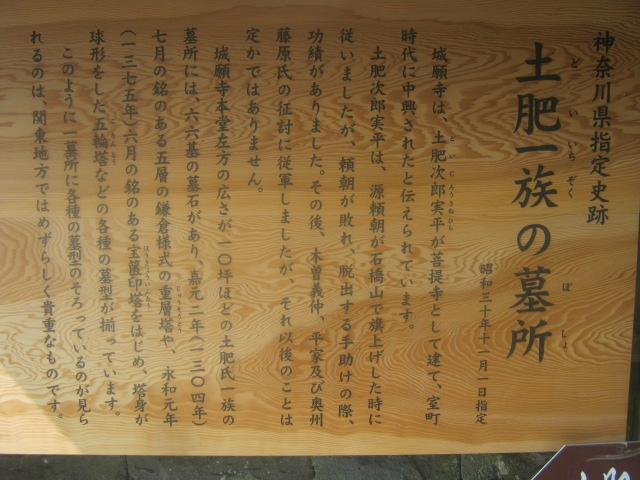 神奈川県指定史跡
土肥一族の墓所
どいいちぞく ぼしょ
昭和三十年十一月一日指定
城願寺は、土肥次郎実平が菩提寺として建て、室町
どいじろうさねひら
時代に中興されたと伝えられています。
土肥次郎実平は、源頼朝が石橋山で旗上げした時に
従いましたが、頼朝が敗れ、脱出する手助けの際、
功績がありました。その後、木曽義仲、平家及び奥州
藤原氏の征討に従軍しましたが、それ以後のことは
定かではありません。
城願寺本堂左方の広さが一〇坪ほどの土肥氏一族の
墓所には、六六基の墓石があり、嘉元二年(一三〇四年)
七月の銘のある五層の鎌倉様式の重層塔や、永和元年
じゅうそうとう
(一三七五年)六月の銘のある宝篋印塔をはじめ、塔身が
ほうきょういんとう
球形をした五輪塔などの各種の墓型が揃っています。
ごりんとう
このように一墓所に各種の墓型のそろっているのが見ら
れるのは、関東地方ではめずらしく貴重なものです。